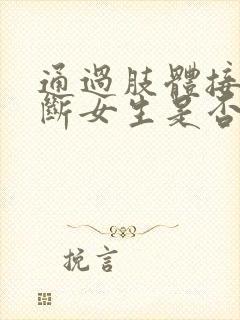 通過肢體接
斷女生是否
挽言